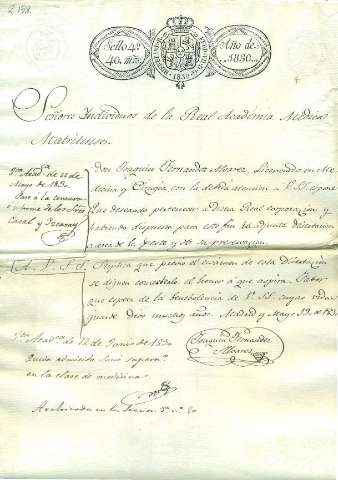 Sello 4º
40. mrs.
HISPANIARUM
1830
Año de
1830.
Señores Individuos de la Real Académia Médica
Matritense.
Rl. Acadª de 22 de
Mayo de 1830
Pase á la censura
é informe de los Sres
Casal y
Don Joaquin Fernandez Alvarez, Licenciado en Me-
dicina y Cirugía con la debida atencion á V. SS. expone
Que deseando pertenecer á Dicha Real corporacion y
habiendo dispuesto para este fin la adjunta Disertacion
acerca de la peste y de su preservacion.
A V. SS. Suplica que previo el exámen de esta Disertacion
se dignen concederle el honor á que aspira. Favor
que espera de la benevolencia de V. SS. cuyas vidas
guarde Dios muchos años. Madrid y Mayo 19 de 1830
Joaquin Fernandez
Alvarez
Rl. Acadca de 12 de Junio de 1830
Queda admitido Socio
en la clase de medicina.
Archivado en la Seccion 5ª nº 20